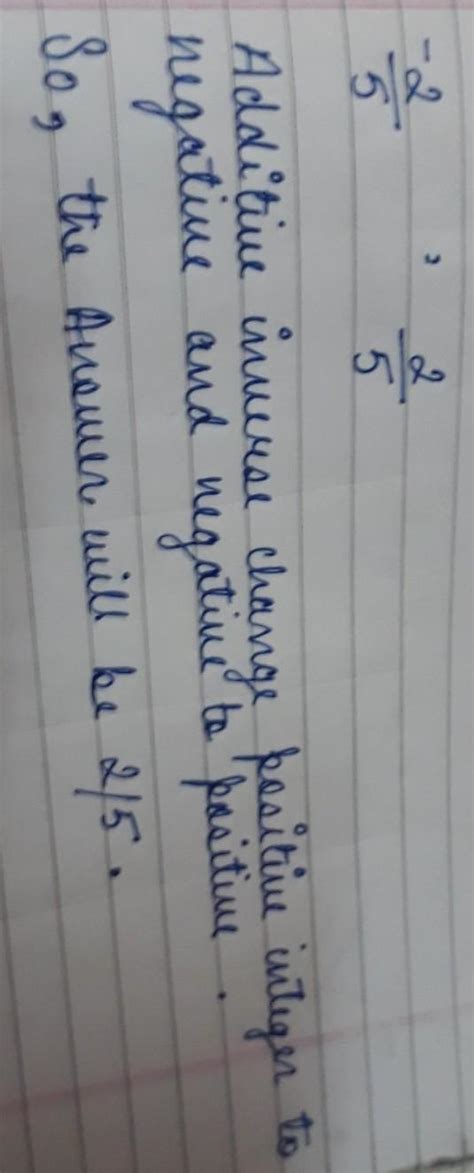 -2/5 , 2/5
Additive inverse change positive integer to
negative and negative to positive.
So, the Answer will be 2/5.